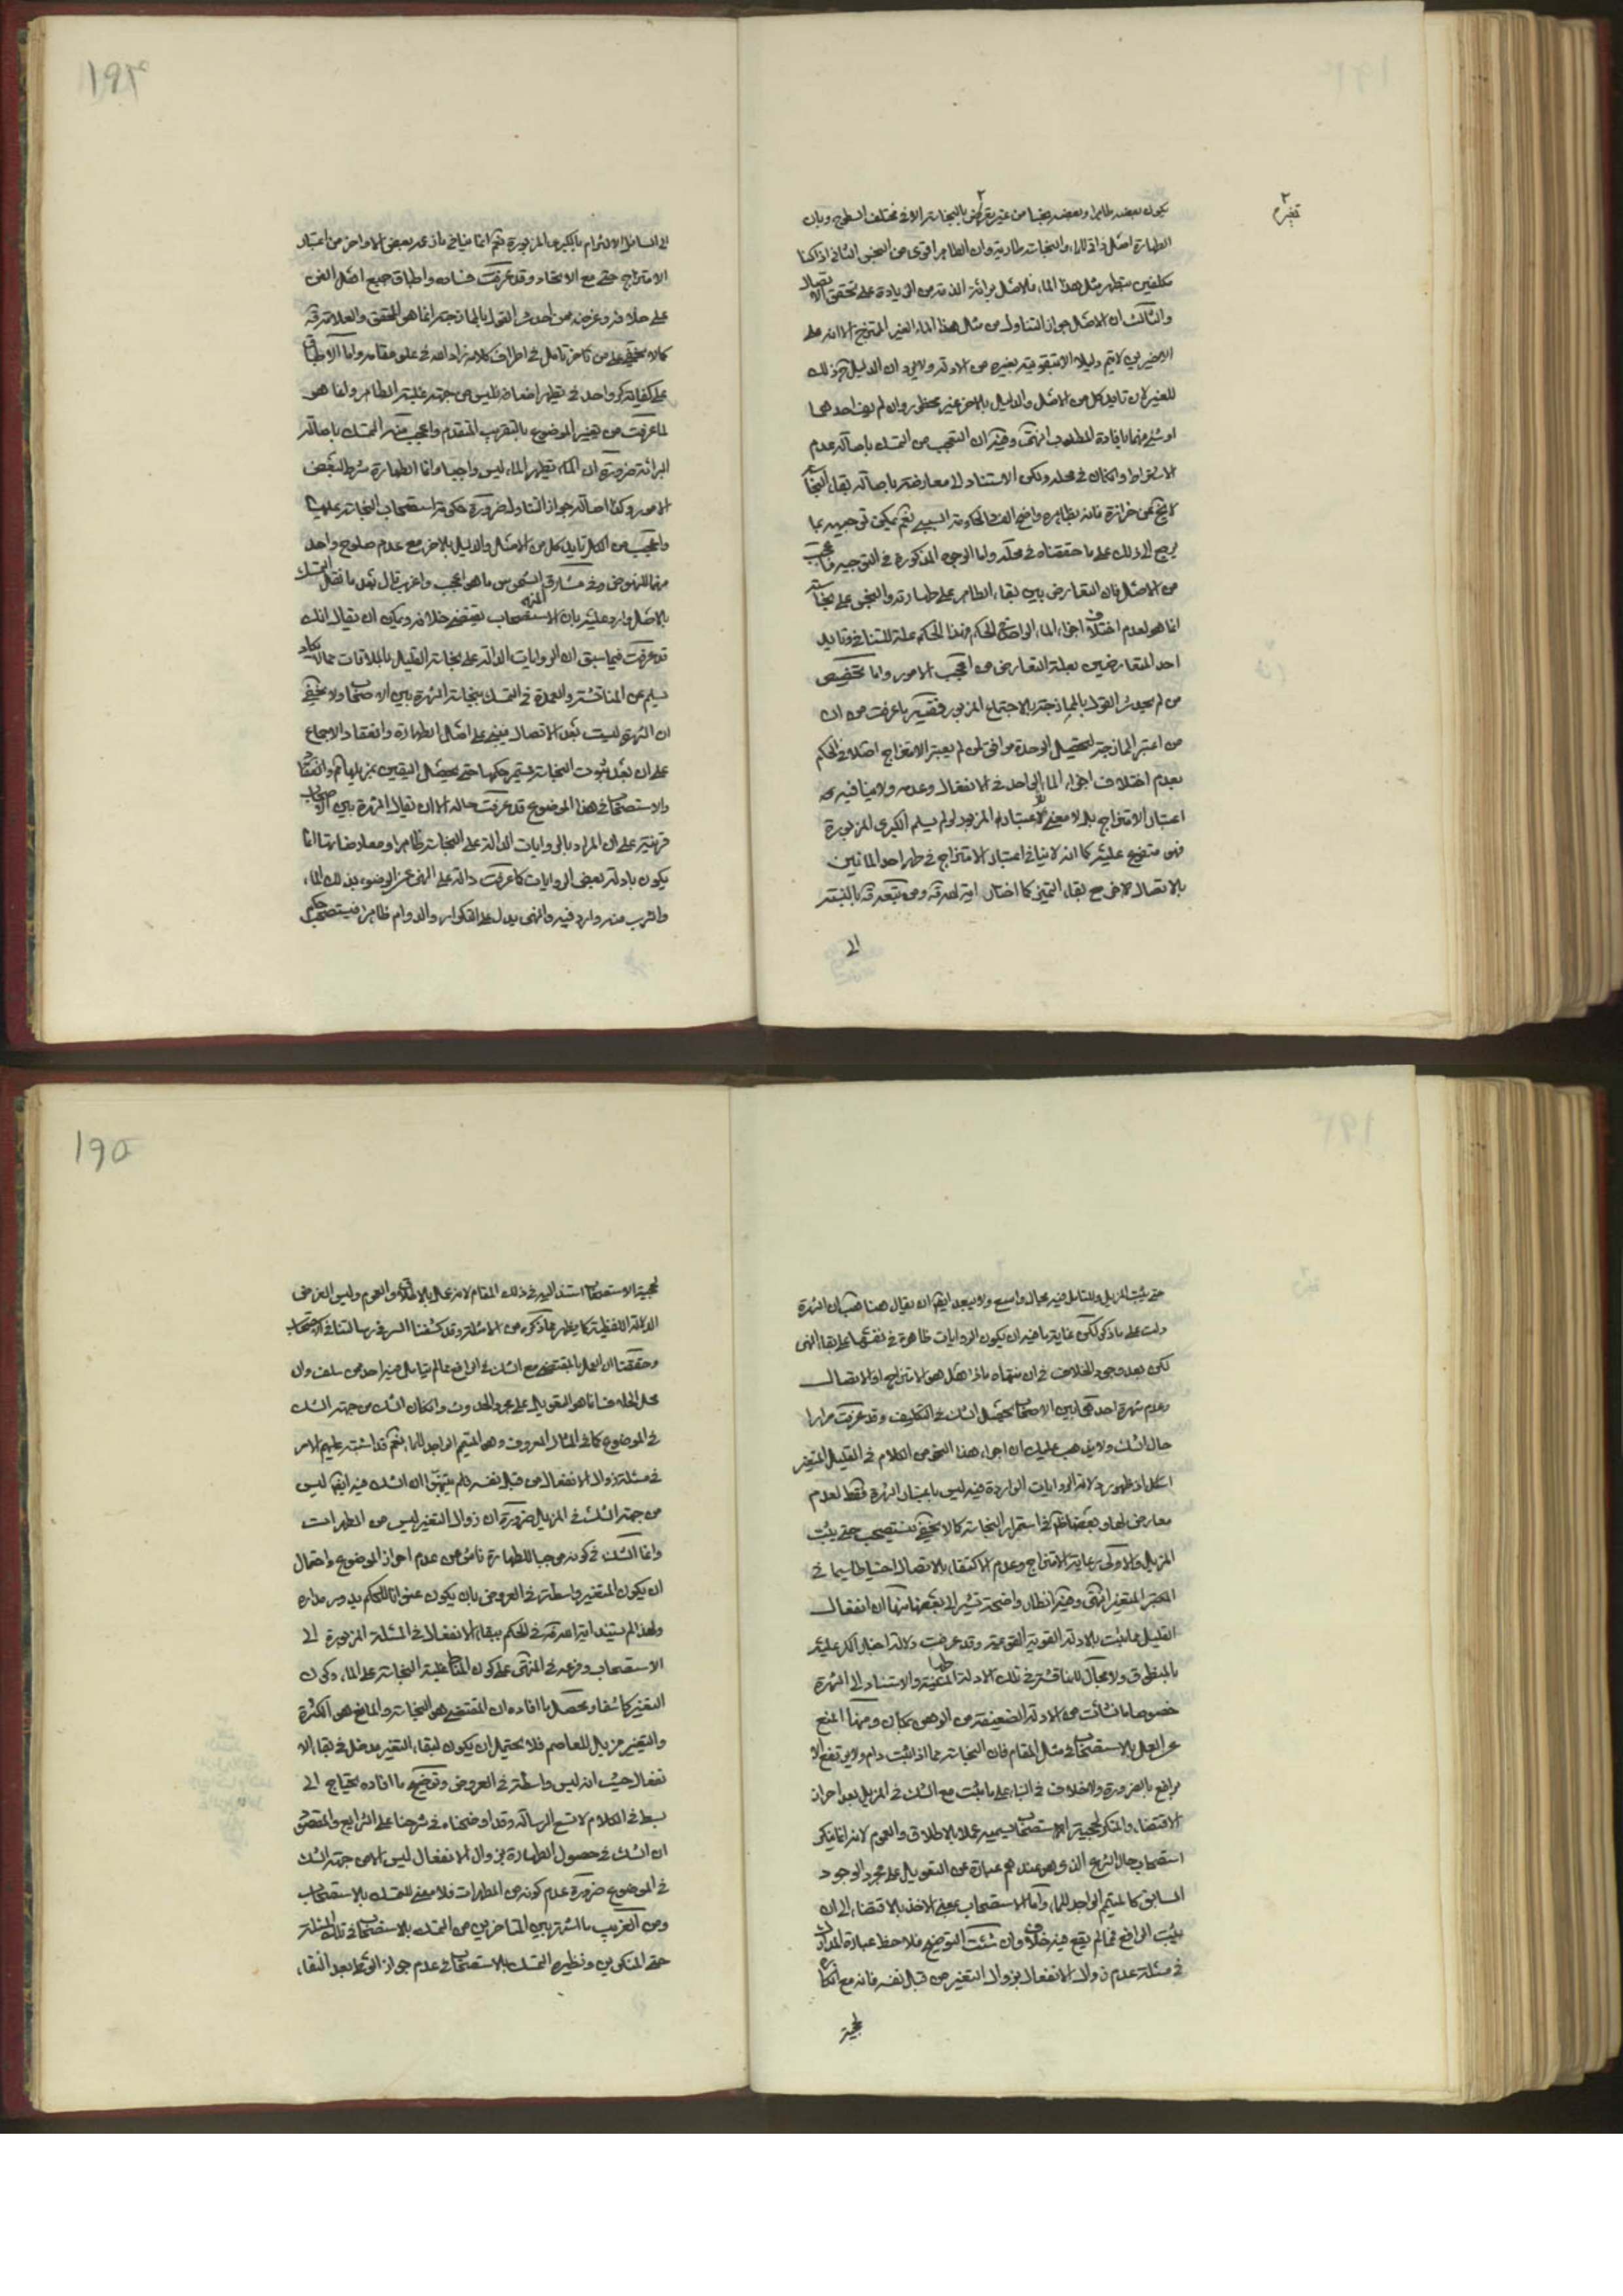 ۱۹۴
تغيره
يكون بعضه طاهرا وبعضه نجسا من غير تغيره بالنجاسة الا في مختلف السطوح وبان
الطهارة اصل ذاتي للماء والنجاسة طارية وان الطاهر اقوى من النجس الثاني اذا كنا
مكلفين بتطهير مثل هذا الماء فالاصل برائة الذمة من الزيادة على تحقق الاتصال
والثالث ان الاصل جواز التناول من مثل هذا الماء الغير الممتزج الا انه على
الاخيرين لا يتم دليلا الا بتقويته بغيره من الادلة ولا ريب ان الدليل ح ذلك
للغير لان تاييد كل من الاصل والدليل بالاخر غير محظور وان لم يف احدهما
او شئ منهما بافادة المطلوب انتهى وفيه ان التعجب من التمسك باصالة عدم
الاشتراط وان كان في محله ولكن الاستناد الى معارضته باصالة بقاء النجاسة
لا يخ عن حزازة فانه بظاهره واضح الفساد لحكومة السببي نعم يمكن توجيهه بما
يرجع الى ذلك على ما حققناه في محله واما الوجوه المذكورة في التوجيه فاعجب
من الاصل فان التعارض بين بقاء الطاهر على طهارته والنجس على نجاسته
انما هو لعدم اختلاف اجزاء الماء الواحد في الحكم فهذا الحكم علة للتنافي وتاييد
احد المتعارضين بعلة التعارض من اعجب الامور واما تخصيص
من لم يحدث القول بالممازجة بالاجتماع المزبور ففيه ما عرفت من ان
من اعتبر الممازجة لتحصيل الوحدة موافق لمن لم يعتبر الامتزاج اصلا في الحكم
بعدم اختلاف اجزاء الماء الواحد في الانفعال وعدمه ولا ينافيه
اعتبار الامتزاج بل لا معنى لاعتباره المزبور لو لم يسلم الكبرى المزبورة
فهو متفرع عليه كما انه لا ينافي اعتبار الامتزاج في طهر احد المائين
بالاتصال بالاخر مع بقاء التميز كما اختاره اية الله قه ومن تبعه قه بالنسبة
الى
الى المسائل الالتزام بالكبرى المزبورة نعم انما ينافي ما زعمه بعض الاواخر من اعتبار
الامتزاج حتى مع الاتحاد وقد عرفت فساده واطباق جميع اهل الفن
على خلافه وغرضه ممن احدث القول بالممازجة انما هو المحقق والعلامة قه
كما لا يخفى على من تاخر تامل في اطراف كلامه زاد الله في علو مقامه واما الاطباق
على كفاية كر واحد في تطهير اضعافه فليس من جهة غلبة الطاهر وانما هو
لما عرفت من تغير الموضوع بالتقريب المتقدم واعجب منه التمسك باصالة
البرائة ضرورة ان الماء تطهير الماء ليس واجبا وانما الطهارة شرط لبعض
الامور وكذا اصالة جواز التناول ضرورة حكومة استصحاب النجاسة عليها
واعجب من الكل تاييد كل من الاصل والدليل بالاخر مع عدم صلوح واحد
منهما للنهوض وفي مشارق الشموس ما هو اعجب واغرب قال بعد ما نقل التمسك
بالاصل واورد عليه بان الاستصحاب يقتضي خلافه ويمكن ان يقال انك
قد عرفت فيما سبق ان الروايات الدالة على نجاسة القليل بالملاقات مما لا يكاد
يسلم عن المناقشة والعمدة في التمسك بنجاسته الشهرة بين الاصحاب ولا يخفى
ان الشهرة ليست بعد الاتصال فيبقى على اصل الطهارة وانعقاد الاجماع
على ان بعد ثبوت النجاسة يستمر حكمها حتى يحصل اليقين بمزيلها ثم وانعقاد
والاستصحاب في هذا الموضوع قد عرفت حاله الا ان يقال الشهرة بين الاصحاب
قرينة على ان المراد بالروايات الدالة على النجاسة ظاهرا ومعارضاتها انما
يكون بادلة بعض الروايات كما عرفت دالة على النهي عن الوضوء بذلك الماء
والشرب منه وارد فيه والنهي يدل على التكرار والدوام ظاهرا فيستصحب حكم
۱۹۵
حتى يثبت المزيل وللتامل فيه مجال واسع ولا يبعد ايضا ان يقال هنا هب ان الشهرة
دلت على ما ذكر لكن غاية ما فيه ان يكون الروايات ظاهرة في نفسها على بقاء النهي
لكن بعد وجود الخلاف في ان منتهاه ماذا هل هو الامتزاج او الاتصال
وعدم شهرة احدهما بين الاصحاب يحصل الشك في التكليف وقد عرفت مرارا
حال الشك ولا يذهب عليك ان اجراء هذا النحو من الكلام في القليل المتغير
اشكل اذ ظهور دلالة الروايات الواردة فيه ليس باعتبار الشهرة فقط لعدم
معارض لها وبعضها ظاهر في استمرار النجاسة كما لا يخفى فيستصحب حتى يثبت
المزيل والاولى رعاية الامتزاج وعدم الاكتفاء بالاتصال احتياطا سيما في
الكثير المتغير انتهى وفيه انظار واضحة نشير الى بعضها منها ان انفعال
القليل مما يثبت بالادلة القوية القويمة وقد عرفت دلالة اخبار الكر عليه
بالمنطوق ولا مجال للمناقشة في تلك الادلة المتقنة والاستناد الى الشهرة
خصوصا ما نشأت من الادلة الضعيفة من الوهن بمكان ومنها المنع
عن العمل بالاستصحاب في مثل المقام فان النجاسة مما اذا ثبت دام ولا يرتفع الا
برافع بالضرورة ولا خلاف في البناء على ما يثبت مع الشك في المزيل بعد احراز
الاقتضاء والمنكر لحجية الاستصحاب يسميه عملا بالاطلاق والعموم لانه انما ينكر
استصحاب حال الشرع الذي هو عندهم عبارة عن التعويل على مجرد الوجود
السابق كالمتيمم الواجد للماء واما الاستصحاب بمعنى الاخذ بالاقتضاء الى ان
يثبت الرافع فمما لم يقع فيه خلاف وان شئت التوضيح فلاحظ عبارة المدارك
في مسئلة عدم زوال الانفعال بزوال التغير من قبل نفسه فانه مع انكاره
لحجية
لحجية الاستصحاب استند اليه في ذلك المقام لانه عمل بالاطلاق والعموم وليس الغرض
الدلالة اللفظية كما يظهر مما ذكره من الامثلة وقد كشفنا السر في رسالتنا في الاستصحاب
وحققنا ان العمل بالمقتضي مع الشك في الرافع مما لم يتامل فيه احد من سلف وان
محل الخلاف انما هو التعويل على مجرد الحدوث وان كان الشك من جهة الشك
في الموضوع كما في المثال المعروف وهو المتيمم الواجد للماء نعم قد اشتبه عليهم الامر
في مسئلة زوال الانفعال من قبل نفسه فلم يتنبهوا ان الشك فيه ايضا ليس
من جهة الشك في المزيل ضرورة ان زوال التغير ليس من المطهرات
وانما الشك في كونه موجبا للطهارة ناش من عدم احراز الموضوع واحتمال
ان يكون المتغير واسطة في العروض بان يكون عنوانا للحكم يدور مداره
ولهذا لم يستند اية الله قه في الحكم ببقاء الانفعال في المسئلة المزبورة الى
الاستصحاب وفرعه في المنتهى على كون المناط غلبة النجاسة على الماء وكون
التغير كاشفا ومحصل ما افاده ان المقتضي هو النجاسة والمانع هو الكثرة
والتغير مزيل للعاصم فلا يحتمل ان يكون لبقاء التغير مدخل في بقاء الا
نفعال حيث انه ليس واسطة في العروض وتوضيح ما افاده يحتاج الى
بسط في الكلام لا تسع الرسالة وقد اوضحناه في شرحنا على الشرايع والمقصود
ان الشك في حصول الطهارة بزوال الانفعال ليس الا من جهة الشك
في الموضوع ضرورة عدم كونه من المطهرات فلا معنى للتمسك بالاستصحاب
ومن الغريب ما اشتهر بين المتاخرين من التمسك بالاستصحاب في تلك المسئلة
حتى المنكرين ونظيره التمسك بالاستصحاب في عدم جواز الوطي بعد النقاء